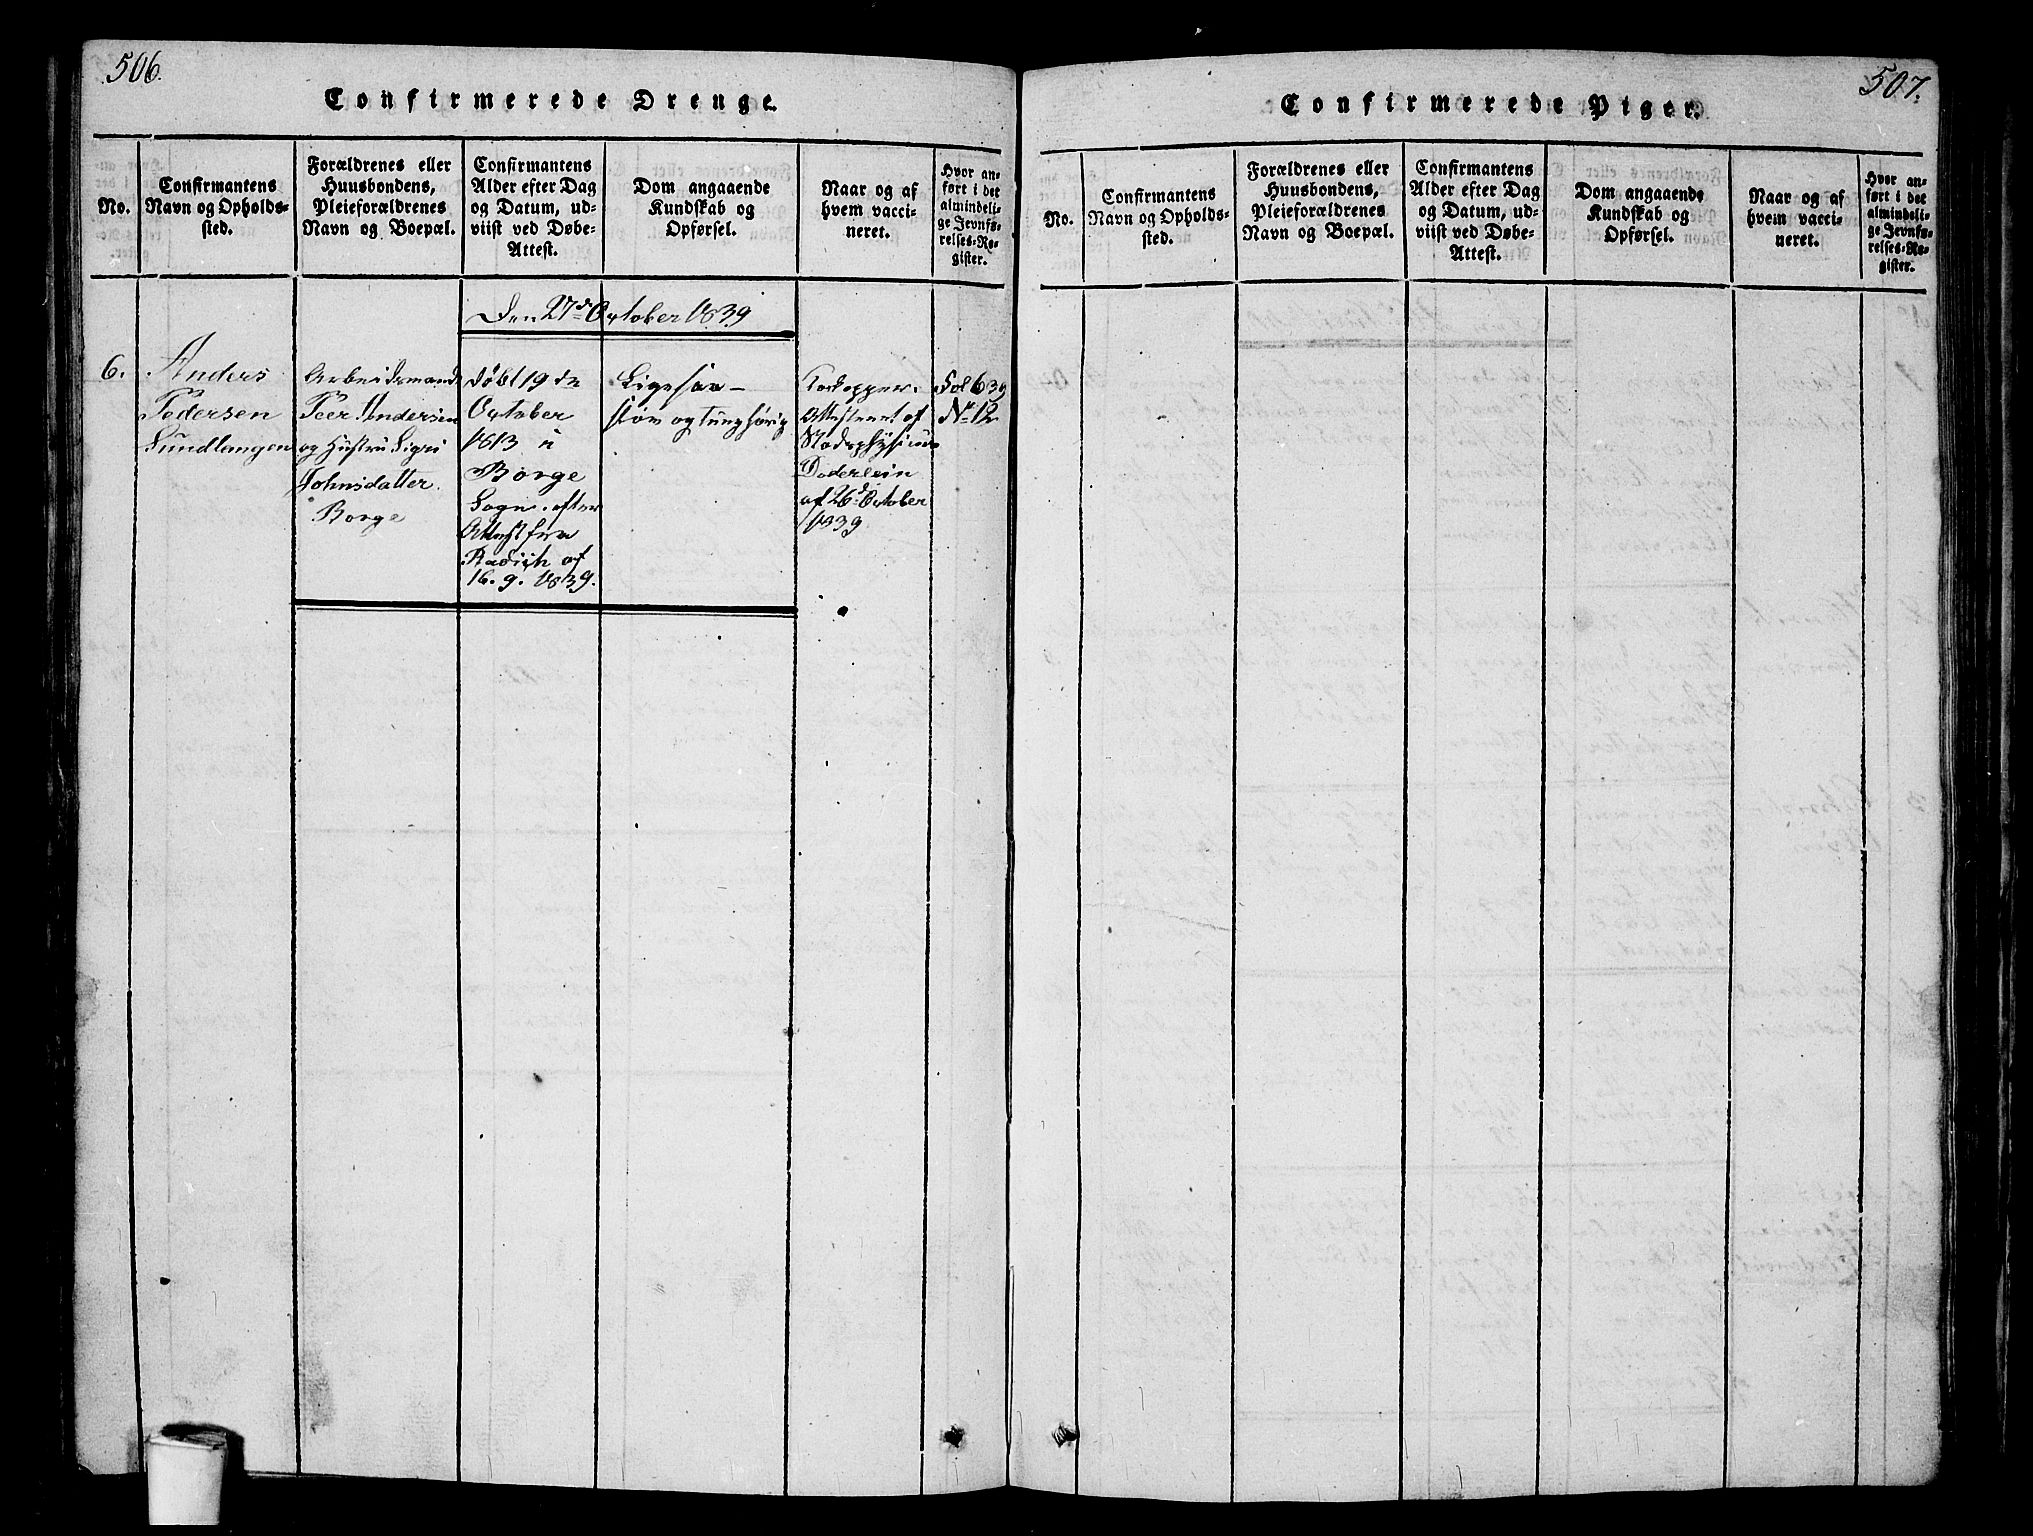 506.
Confirmerede Drenge.
No.
Confirmantens
Navn og Opholds-
sted.
Forældrenes eller
Huusbondens,
Pleieforældrenes
Navn og Boepæl.
Confirmantens
Alder efter Dag
og Datum, ud-
viist ved Døbe-
Attest.
Dom angaaende
Kundskab og
Opførsel.
Naar og af
hvem vacci-
neret.
Hvor an-
ført i det
almindeli-
ge Jevnfø-
relses-Re-
gister.
Den 27de October 1839
6.
Anders
Pedersen
Sundløngen
Arbeidsmand
Peer Andersen
og Hustru Sigri
Johnsdatter
Borge
døbt 19de
October
1813 i
Borge
Sogn. efter
Attest fra
Radich af
16. 9. 1839.
Ligesaa-
sløv og tunghørig
Kokopper.
Attesteret af
Stadsphysicus
Døderlein
af 26de October
1839
Fol 639
No 12
507.
Confirmerede Piger.
No.
Confirmantens
Navn og Opholds-
sted.
Forældrenes eller
Huusbondens,
Pleieforældrenes
Navn og Boepæl.
Confirmantens
Alder efter Dag
og Datum, ud-
viist ved Døbe-
Attest.
Dom angaaende
Kundskab og
Opførsel.
Naar og af
hvem vacci-
neret.
Hvor an-
ført i det
almindeli-
ge Jevnfø-
relses-Re-
gister.